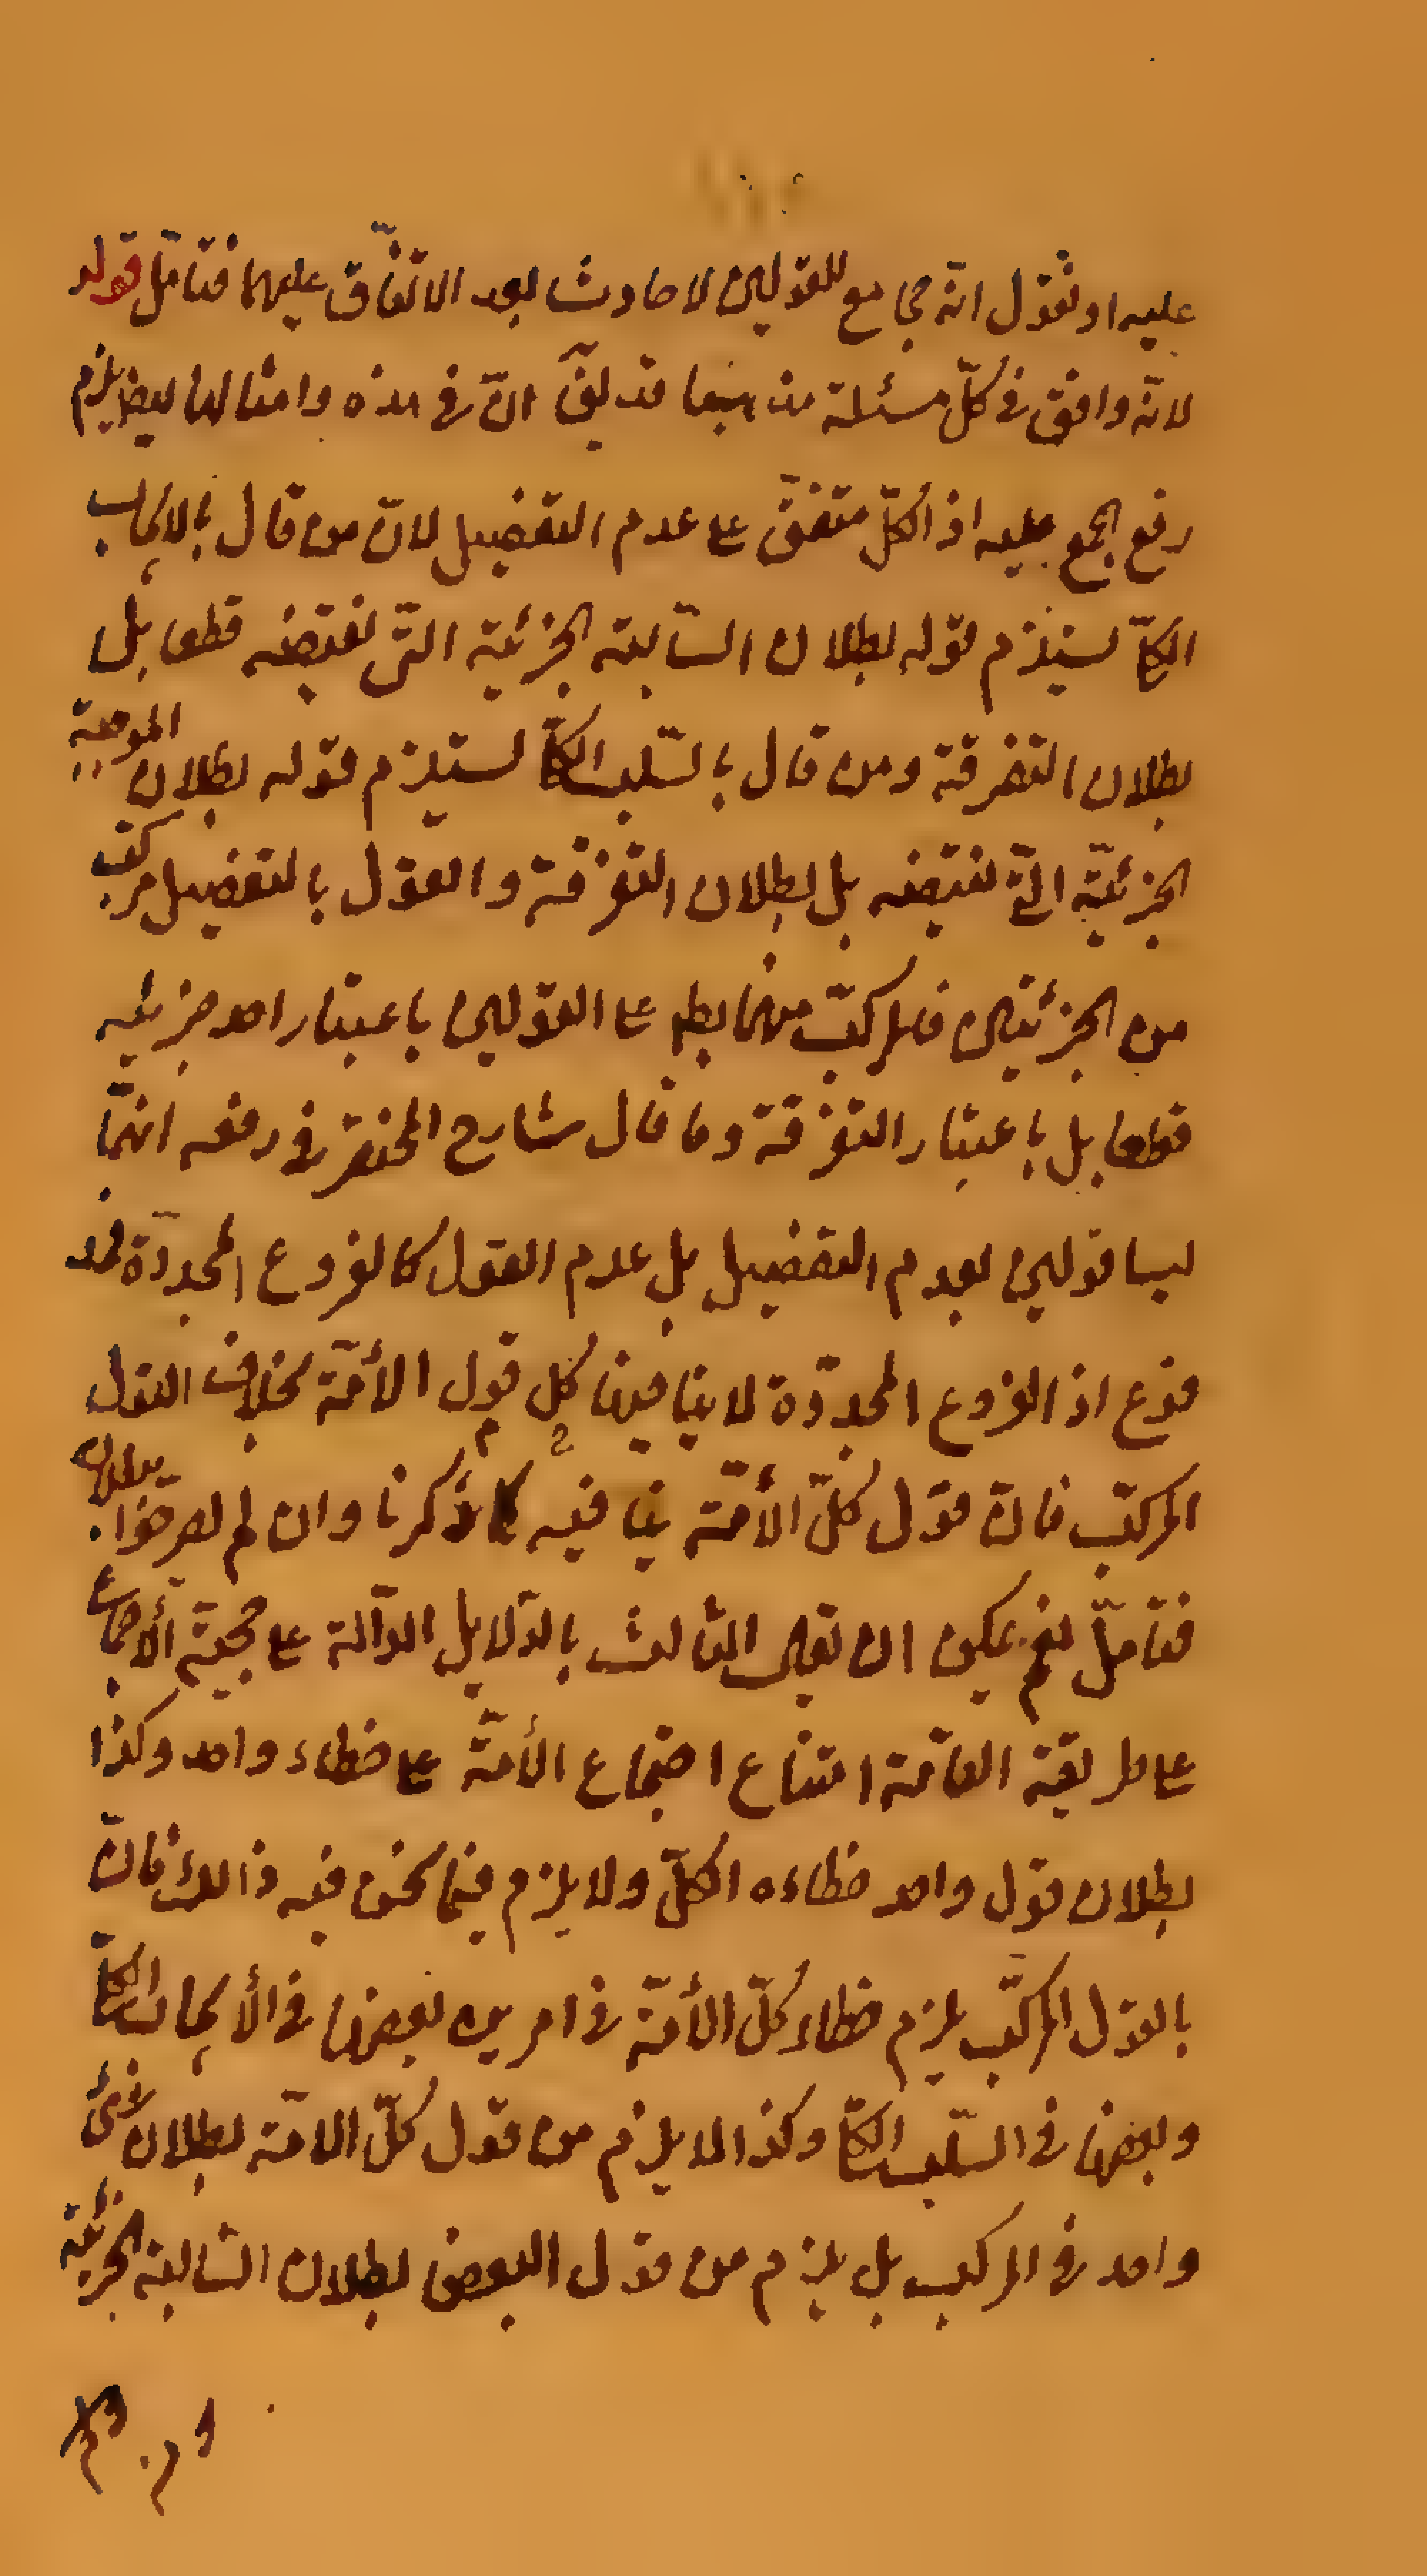 عليه او نقول انّه مجامع للقولين لا حادث بعد الاتّفاق عليهما فتامّل قوله
لانّه وافق في كلّ مسئلة مذهبا قد يقّ انّ في هذه وامثالها ايضا يلزم
رفع المجمع عليه اذ الكلّ متفقّ ع عدم التفضيل لانّ من قال بالايجاب
الكلّ يستلزم قوله بطلان السّالبة الجزئيّة التّى نقيضه قطعا بل
بطلان التفرقة ومن قال بالسّلب الكلّ يستلزم قوله بطلان الموجبة
الجزئيّة الّتى نقيضه بل بطلان التفرقة والقول بالتفضيل مركّب
من الجزئيتين فالمركّب منهما بط ع القولين باعتبار احد جزئيه
قطعا بل باعتبار التفرقة وما قال شارح المختصر في رفعه انّما
ليسا قولين بعدم التفضيل بل عدم القول كالفروع المجدّدة
فرع اذ الفروع المجدّدة لا ينافيها كل قول الأمّة بخلاف القول
المركّب فانّ قول كلّ الأمّة ينافيه كما ذكرنا وان لم يصرّحوا ببطلانه
فتامّل نعم يمكن ان يقال الثالث بالدّلايل الدّالة ع حجيّة الأجماع
ع طريقة العامّة امتناع اجتماع الأمّة ع خطاء واحد وكذا
بطلان قول واحد خطاءه الكلّ ولا يلزم فيما نحن فيه ذالك فانّ
بالقول المركّب يلزم خطاء كلّ الأمّة في امرين بعضها في الأيجاب الكلّ
وبعضها في السّلب الكلّ وكذا لا يلزم من قول كلّ الامّة بطلان شئ
واحد في المركب بل يلزم من قول البعض بطلان السّالبة الجزئيّة